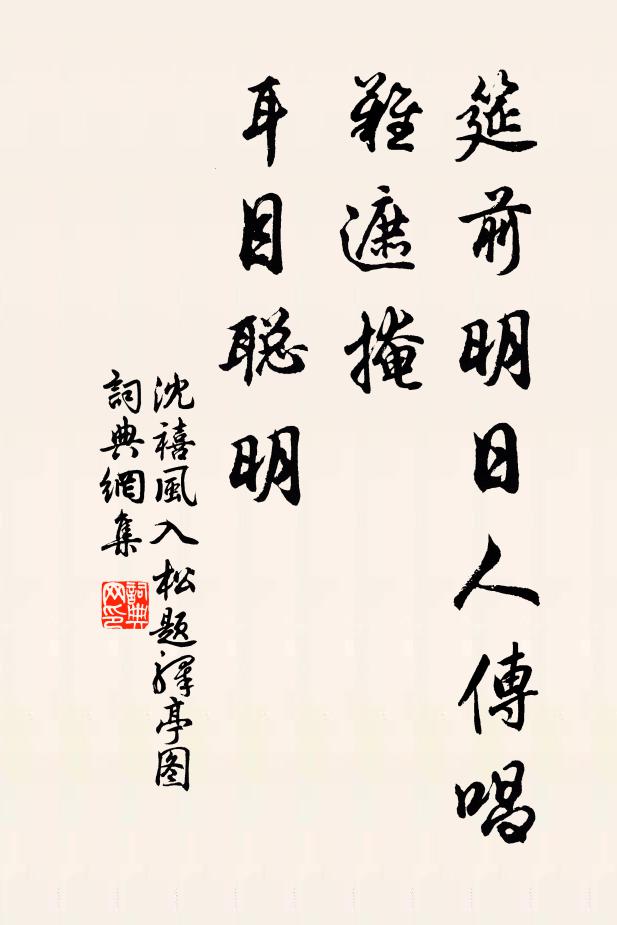 筵前明日人傳唱
難遮掩
耳目聪明
沈禧風入松题驛亭图
詞典網集
詞典网印